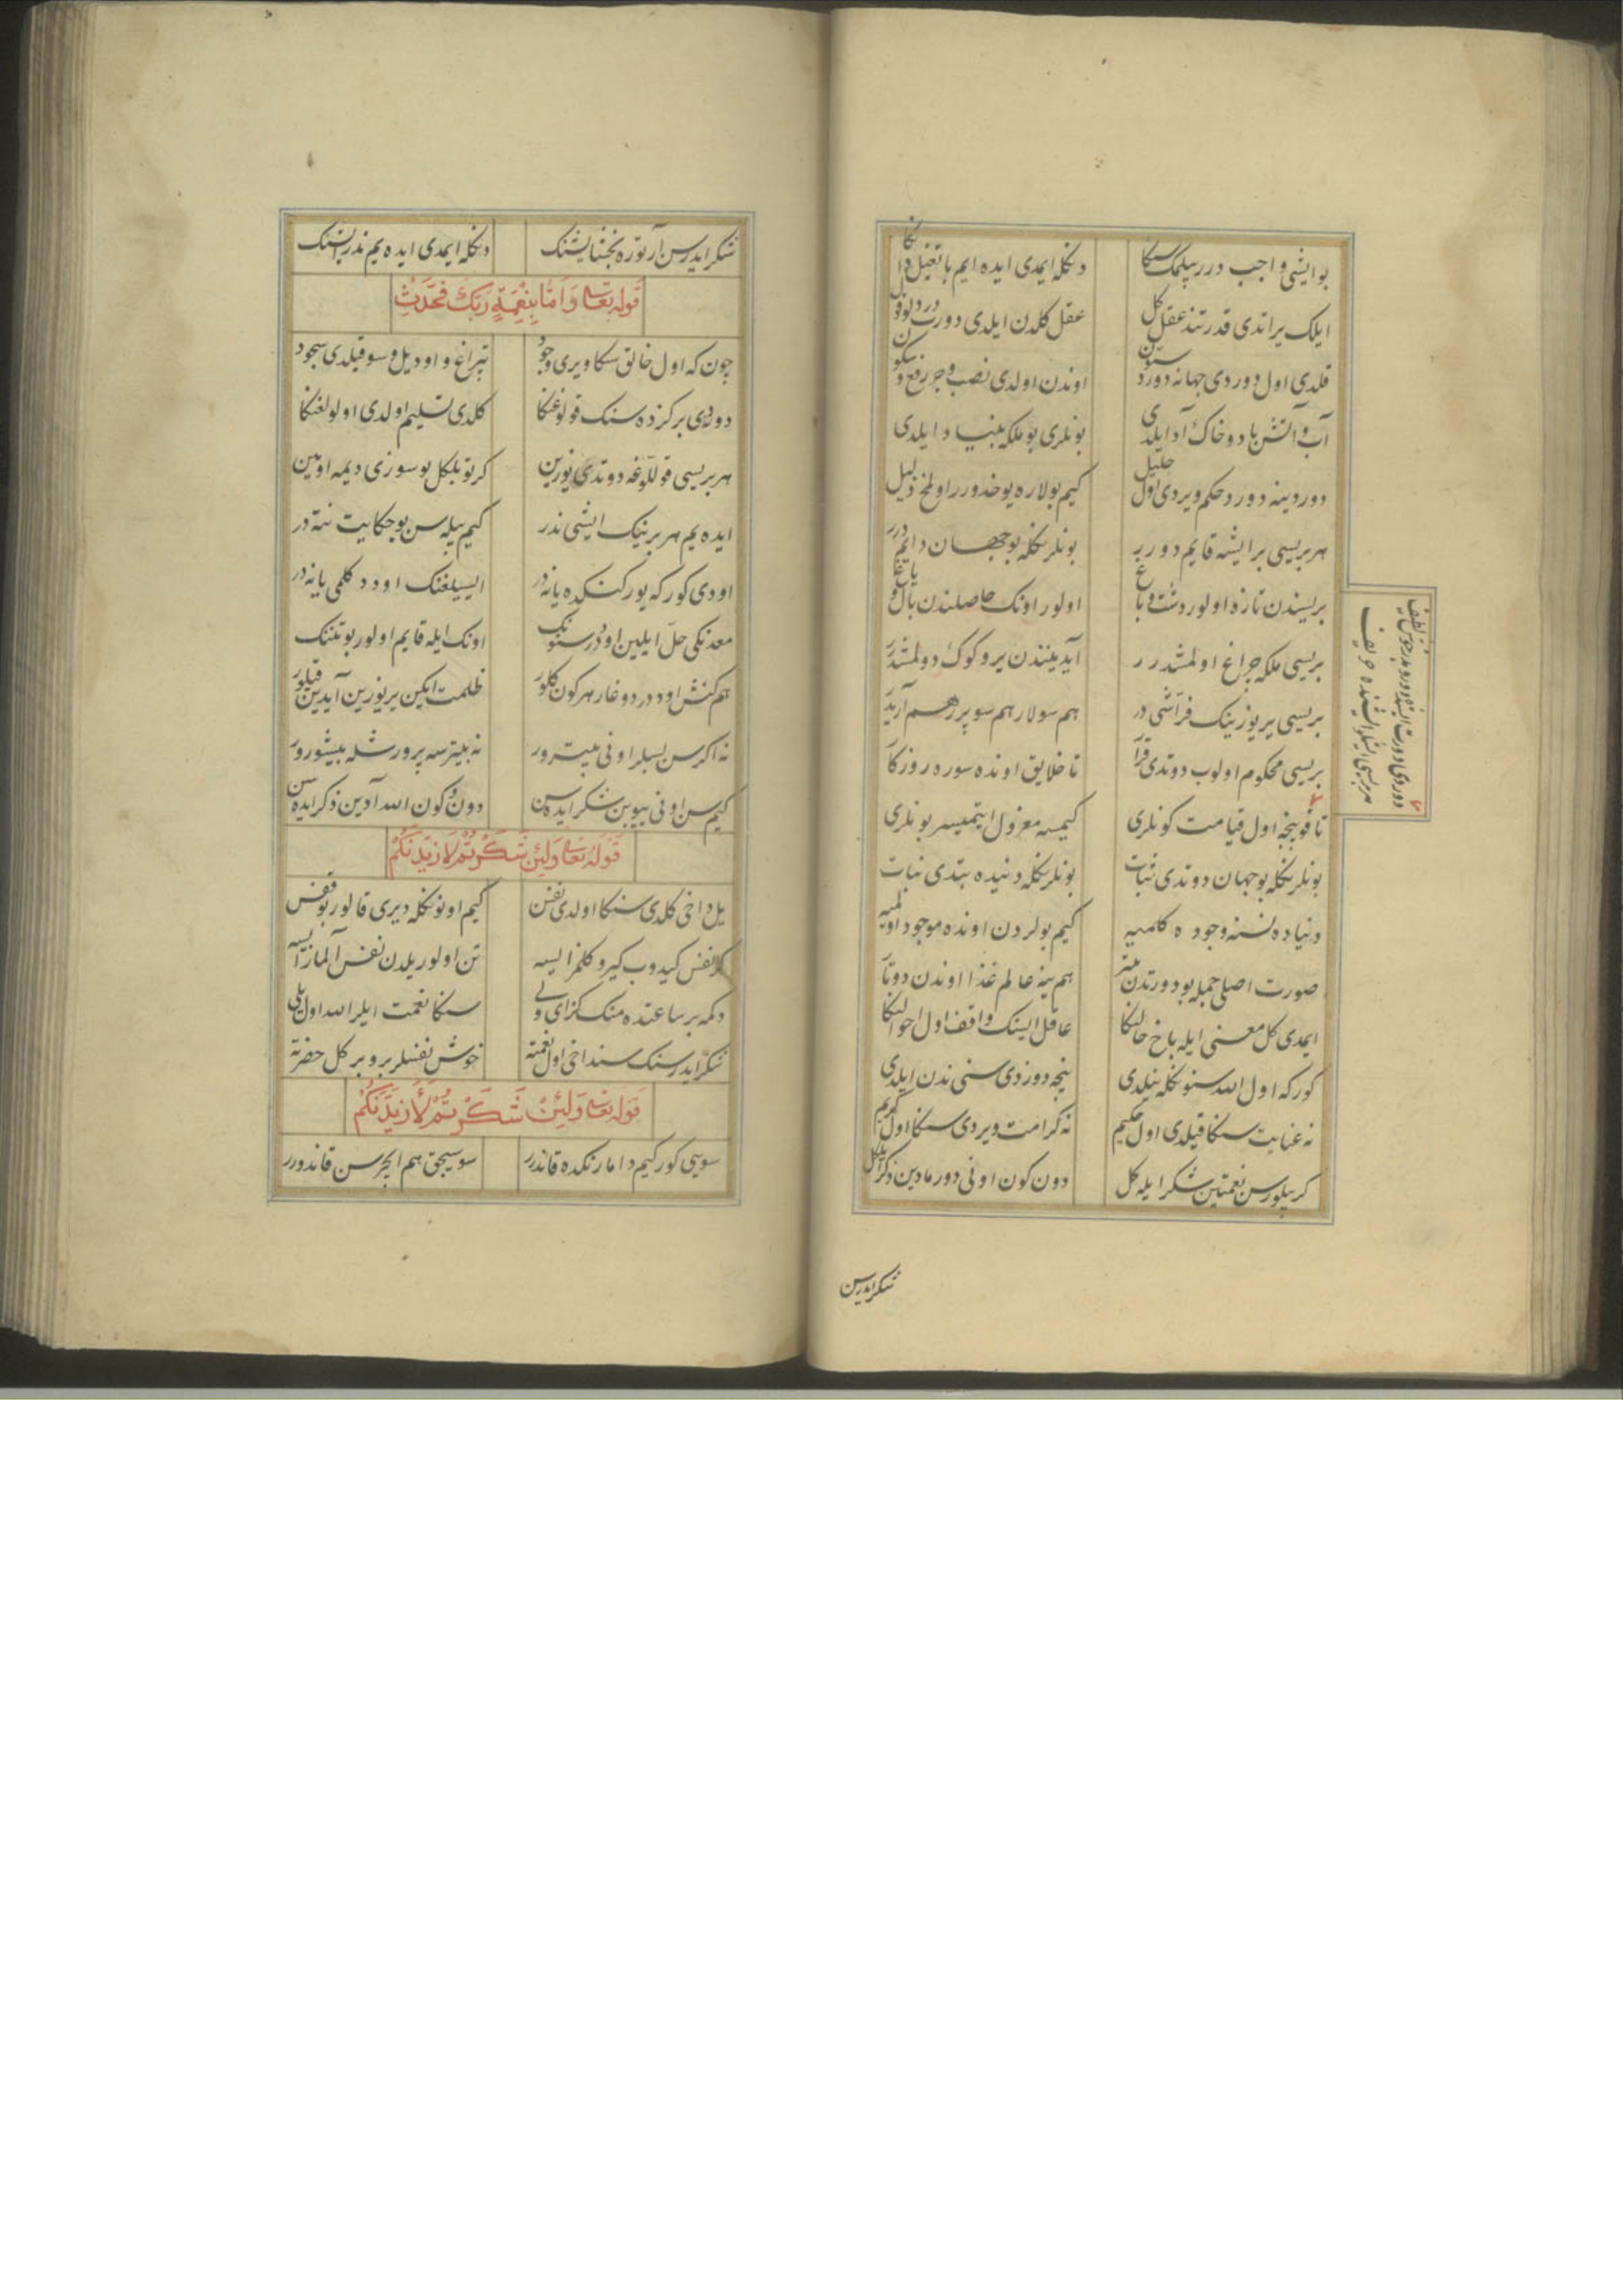 بو ایشی واجب درر بیلمک سکا دنکله ایمدی ایده ایم باتفصیل
ایلک یراتدی قدرتندن عقل کل عقل کلدن ایلدی دورت
قلدی اول دوردی جهانه دورد ستون اوندن اولدی نصب و جر رفع و سکون
آب و آتش باد و خاک آد ایلدی بونلری بو ملکه بنیاد ایلدی
دوردینه دورد حکم ویردی اول جلیل کیم بولاره یوخدورر اولمخ ذلیل
هر بریسی بر ایشه قایم دورر بونلرنکله بو جهان دایم درر
بریسندن تازه اولور دشت و باغ اولور اونک حاصلندن بال و یاغ
بریسی ملکه چراغ اولمشدرر آیدینندن یر و کوک دولمشدرر
بریسی یر یوزینک فراشی در هم سولار هم سوپرر هم
بریسی محکوم اولوب دوتدی قرار تا خلایق اونده سوره روزکار
تا قوپنجه اول قیامت کونلری کیمسه معزول ایتمیسر بونلری
بونلرنکله بو جهان دوتدی ثبات بونلرنکله دنیده بتدی نبات
دنیاده نسنه وجوده کلمیه کیم بولردن اونده موجود اولمیه
صورت اصلی جمله بو دورتدن بیتر هم ینه عالم غذا اوندن دوتار
ایمدی کل معنی ایله باخ حالنکا عاقل ایسنک واقف اول احوالنکا
کورکه اول الله سنونکله نیلدی نیجه دوزدی سنی ندن ایلدی
نه عنایت سنکا قیلدی اول حکیم نه کرامت ویردی سنکا اول کریم
کر بیلورسن نعمتین شکر ایله کل دون کون اونی دورمادین ذکر ایله کل
شکر ایدرسن
هر بریسی ایشلر ایشنده حریف
شکر ایدرسن آرتوره بخشایشنک دنکله ایمدی ایده یم ندر
قوله تعالی وَاَمَّا بِنِعْمَةِ رَبِّكَ فَحَدِّثْ
چون که اول خالق سکا ویردی وجود تپراغ و اود یل و سو قیلدی سجود
دوردی بر کزده سنک قولوغنکا کلدی تسلیم اولدی اولولغنکا
هر بریسی قوللوغه دوتدی یوزین کرتو بلکل بو سوزی دیمه اویین
ایده یم هر برینک ایشی ندر کیم بیله سن بو حکایت نته در
اودی کور که یورکنکده یانه در ایسیلغنک اودد کلمی یانه در
معدنکی حل ایلین اودر سنونک اونک ایله قایم اولور بو تننک
هم کنش اوددر دوغار هر کون کلور ظلمت ایکن یر یوزین آیدین قیلور
نه اکرسن بسلر اونی بیتورور نه بیترسه پرورشله بیشورور
کیم سن اونی ییوبن شکر ایده سن دون و کون الله آدین ذکر ایده سن
قوله تعالی وَلَئِنْ شَكَرْتُمْ لَاَزِيدَنَّكُمْ
یل داخی کلدی سنکا اولدی نفس کیم اونونکله دیری قالور بو قفس
کر نفس کیدوب کیرو کلمز ایسه تن اولور یلدن نفس آلماز ایسه
دکمه بر ساعتده منک کز ای ولی سنکا نعمت ایلر الله اول یلی
شکر ایدرسنک سنداخی اول نعمته خوش نفسلر بر و بر کل حضرته
قوله تعالی وَلَئِنْ شَكَرْتُمْ لَاَزِيدَنَّكُمْ
سویی کور کیم دامارنکده قاندرر سوسیجق هم ایچرسن قاندورر